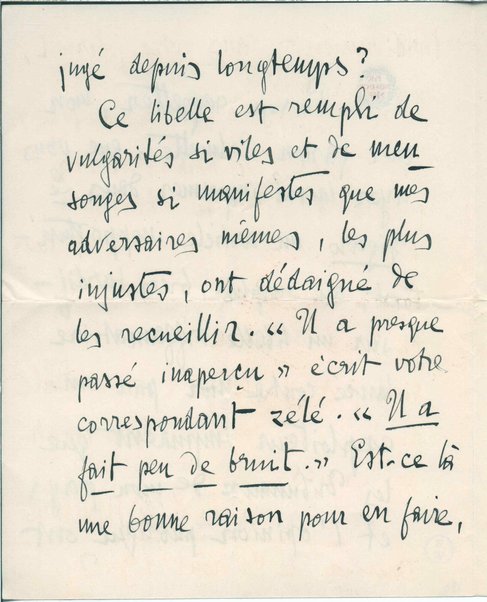 jugé depuis longtemps?
Ce libelle est rempli de
vulgarités si viles et de men
songes si manifestes que mes
adversaires mêmes, les plus
injustes, ont dédaigné de
les recueillir. " Il a presque
passé inaperçu » écrit votre
correspondant zélé. " Il a
fait peu de bruit. » Est-ce là
une bonne raison pour en faire,